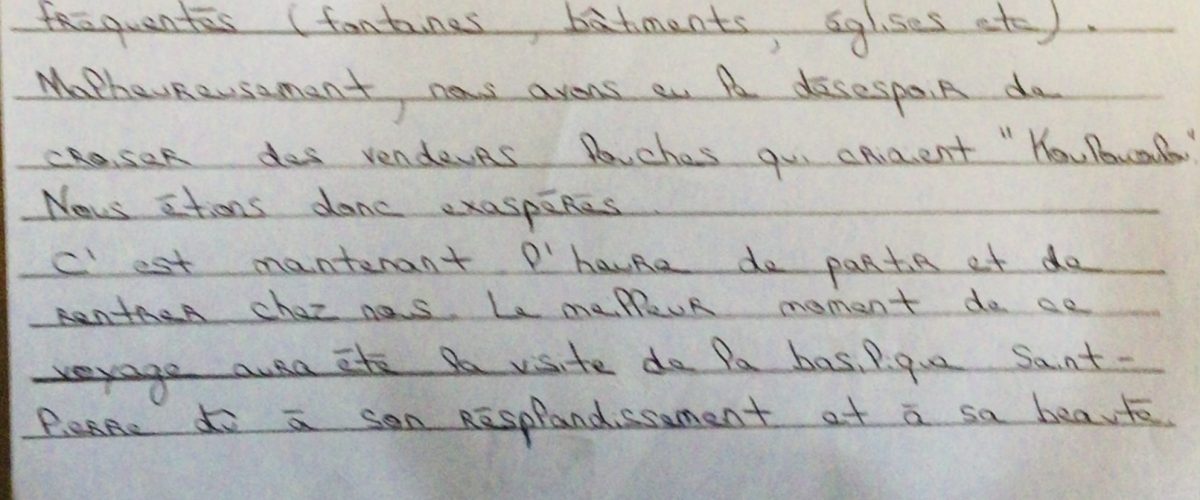 fréquentés (fontaines, bâtiments, églises etc).
Malheureusement, nous avons eu le désespoir de
croiser des vendeurs louches qui criaient "
Nous étions donc exaspérés
C'est mantenant l'heure de partir et de
rentrer chez nous. Le meilleur moment de ce
voyage aura été la visite de la basilique Saint-
Pierre dû à son résplandissement et à sa beauté.